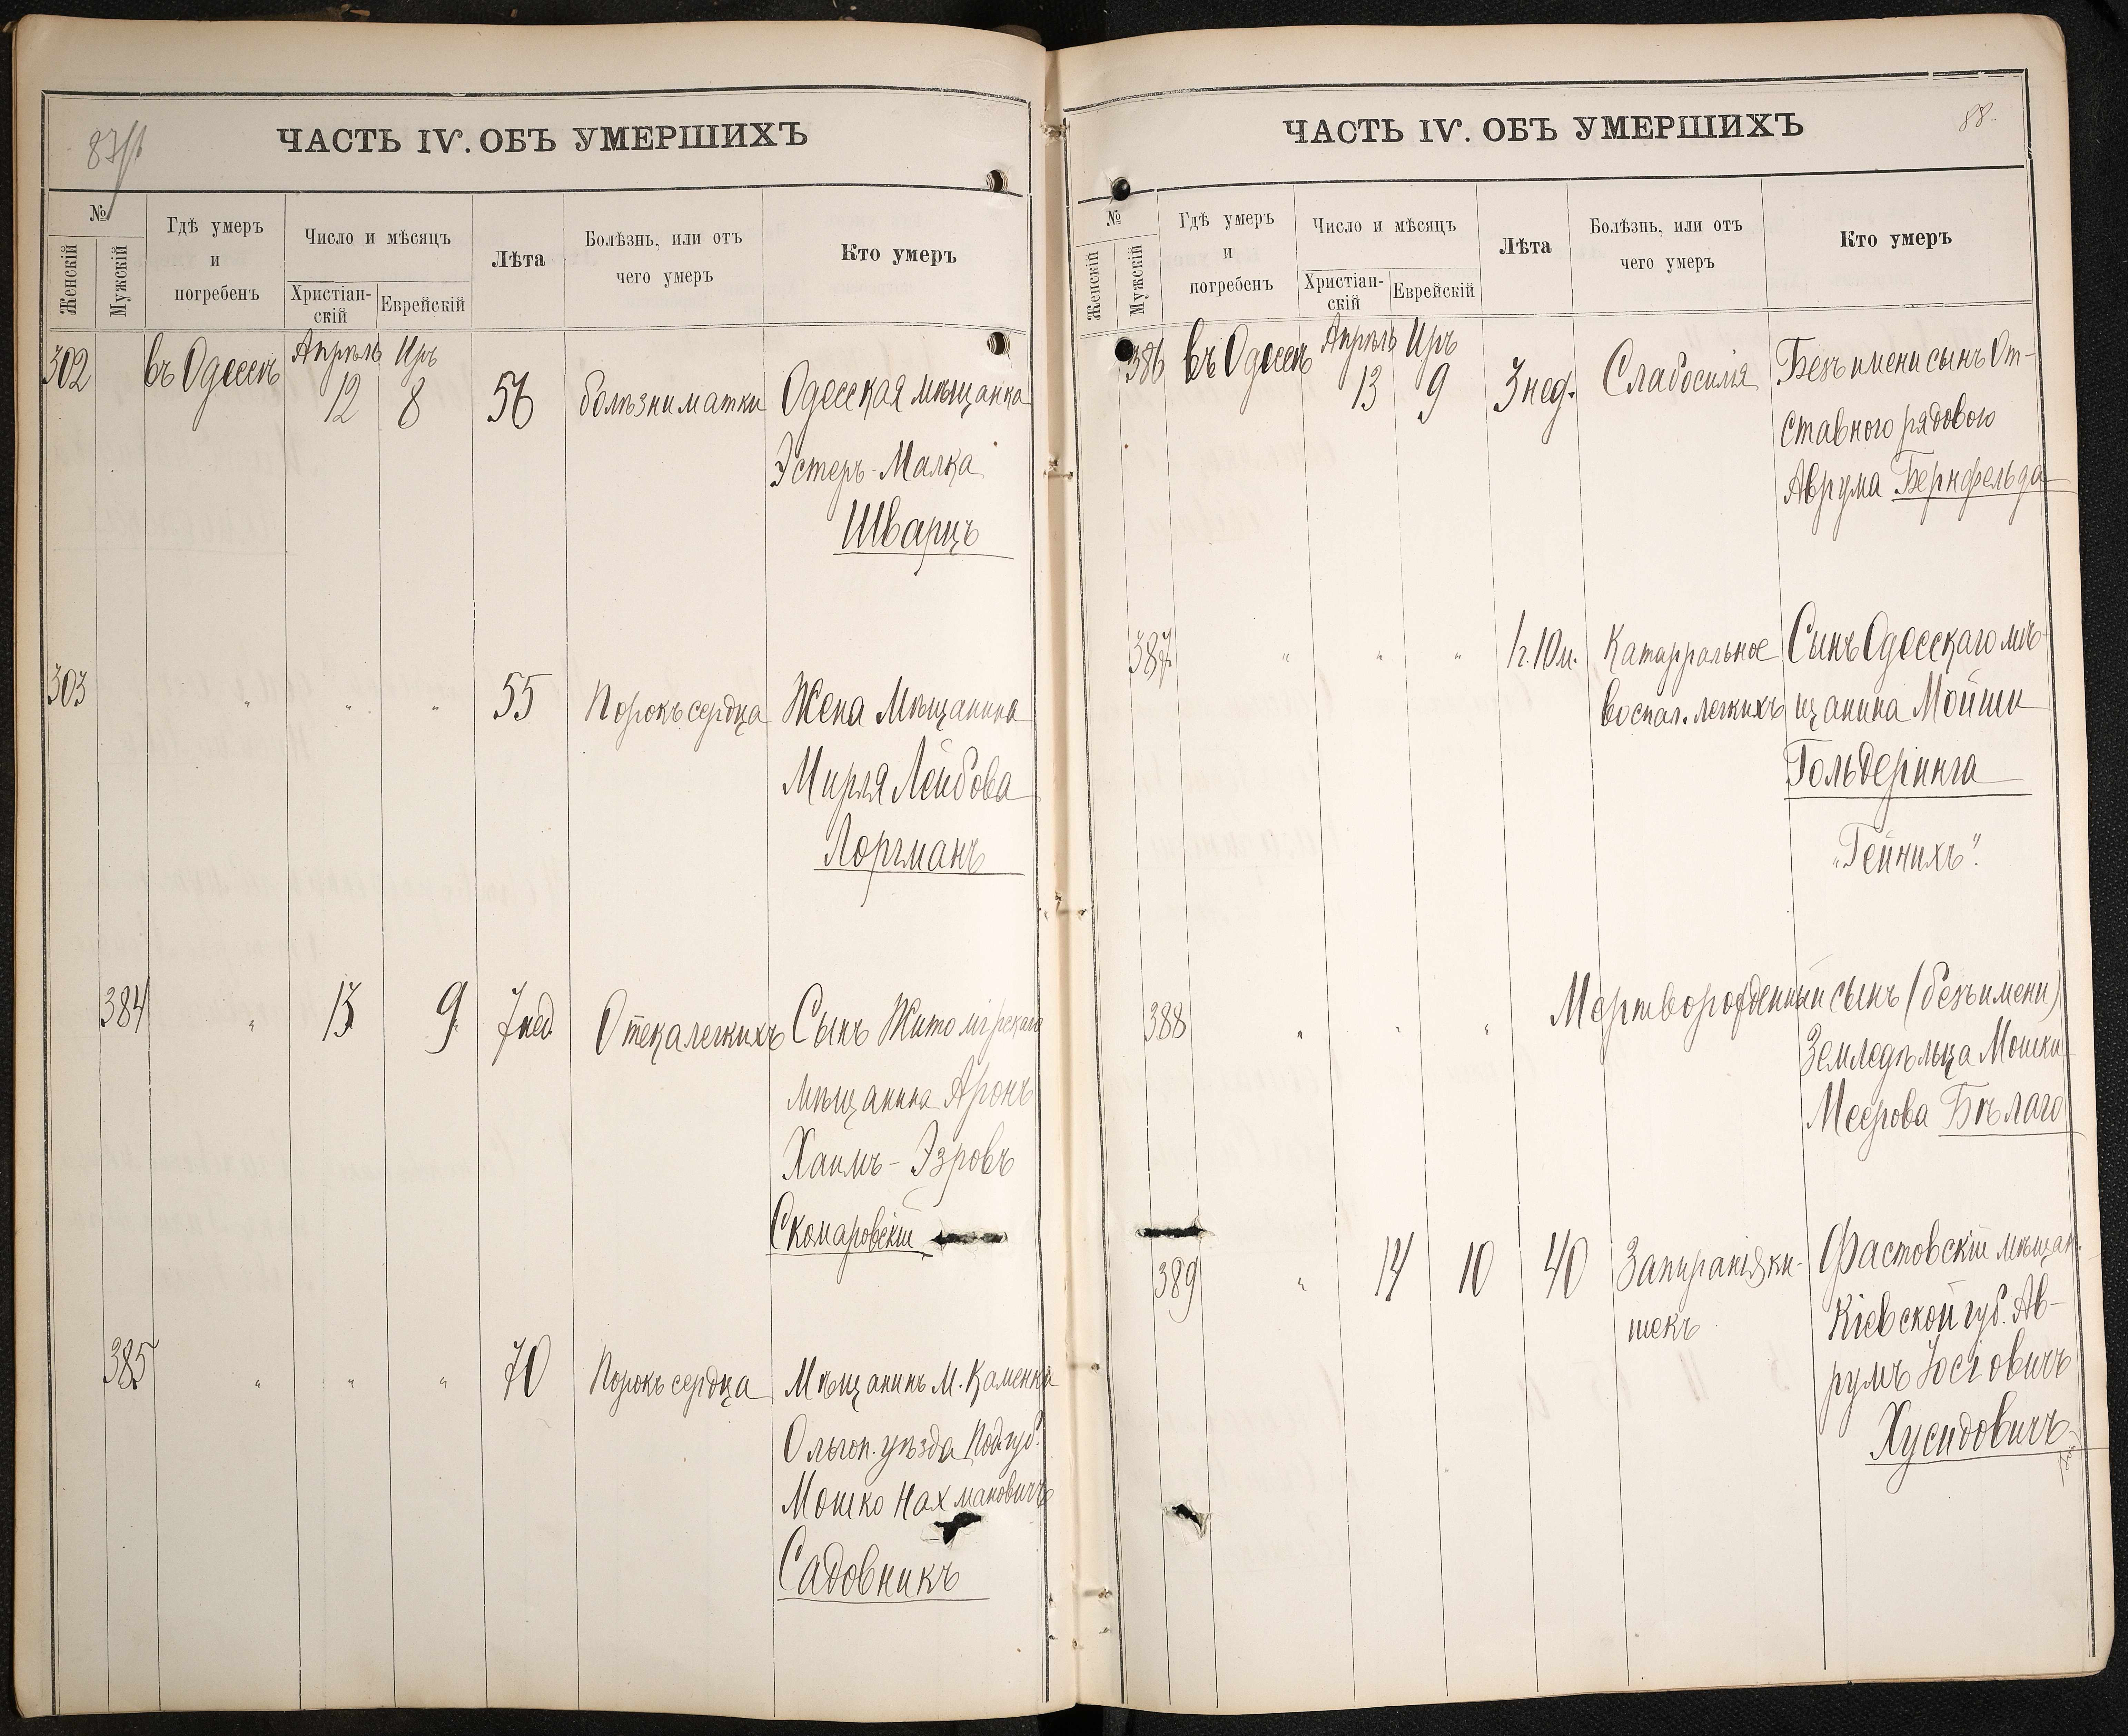 87/об
ЧАСТЬ IV. ОБЪ УМЕРШИХЪ
№
Женскій
Мужскій
Гдѣ умеръ
и
погребенъ
Число и мѣсяцъ
Христіан-
скій
Еврейскій
Лѣта
Болѣзнь, или отъ
чего умеръ
Кто умеръ
302 въ Одессѣ Апрѣль 12 Иръ 8 56 болѣзни матки Одесская мѣщанка
Эстеръ-Малка
Шварцъ
303 " " " 55 Порокъ сердца Жена Мѣщанина
Мирля Лейбова
Лоргманъ
384 " 13 9 7 нед Отека легкихъ Сынъ Житомірскаго
мѣщанина Аронъ
Хаимъ-Эзровъ
Скомаровскій
385 " " " 70 Порокъ сердца Мѣщанинъ М. Каменка
Ольгоп. уѣзда Под. губ.
Мошко Нахмановичъ
Садовникъ
88.
ЧАСТЬ IV. ОБЪ УМЕРШИХЪ
№
Женскій
Мужскій
Гдѣ умеръ
и
погребенъ
Число и мѣсяцъ
Христіан-
скій
Еврейскій
Лѣта
Болѣзнь, или отъ
чего умеръ
Кто умеръ
386 въ Одессѣ Апрѣль 13 Иръ 9 3 нед. Слабосилія Безъ имени сынъ От-
ставного рядового
Аврума Бернфельда
387 " " " 1 г. 10 м. Катарральное Сынъ Одесскаго мѣ-
воспал. легкихъ щанина Мойши
Гольдеринга
„Гейнихъ".
388 " " " Мертворожденный сынъ (безъ имени)
Земледѣльца Мошки
Меерова Бѣлаго
389 " 14 10 40 Запиранія ки- Фастовскій мѣщан.
шекъ Кіевской губ. Ав-
румъ Іосіовичъ
Хусидовичъ